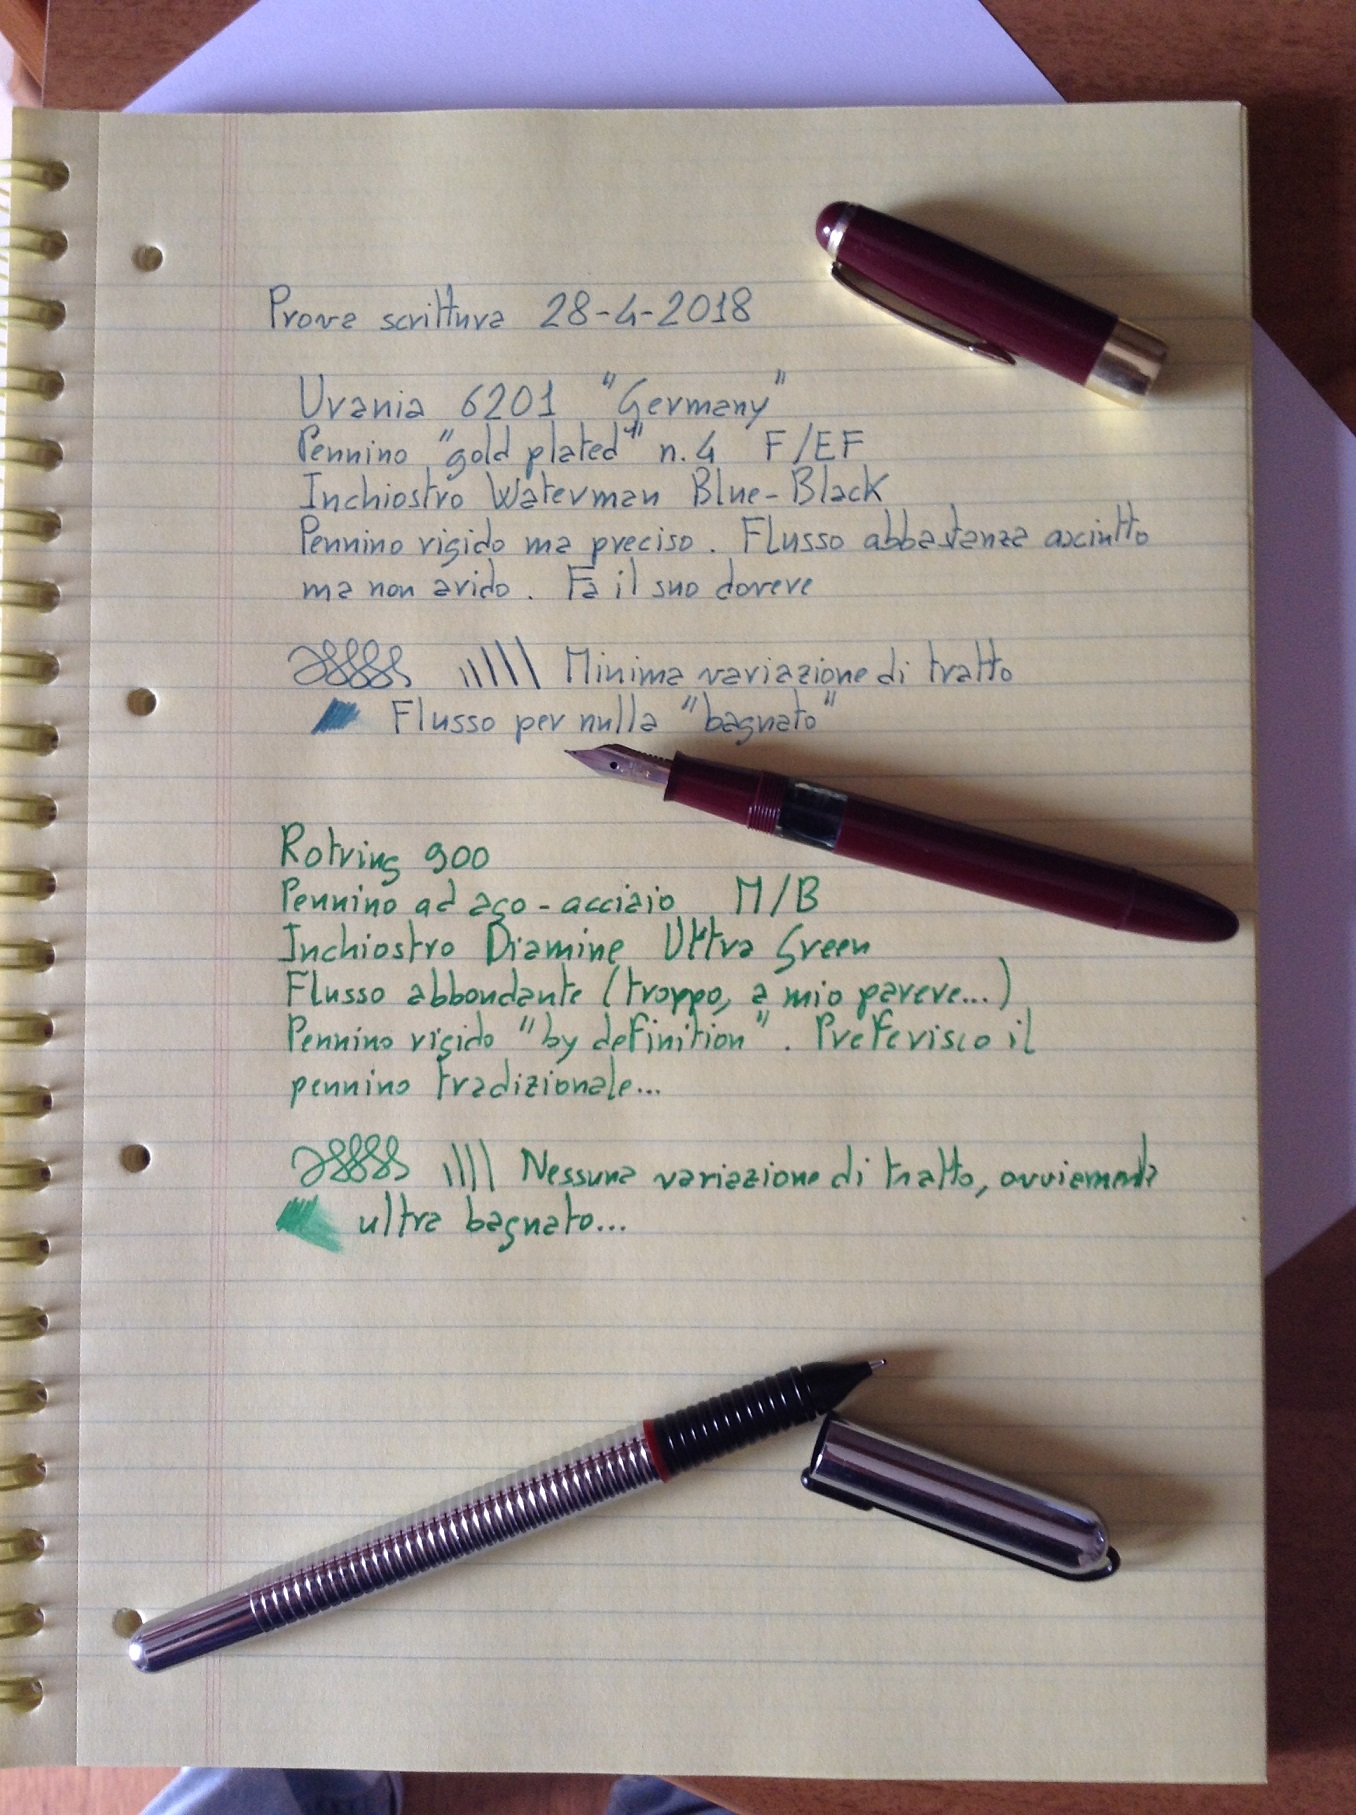 Prova scrittura 28-4-2018
Urania 6201 "Germany"
Pennino "gold plated" n.4 F/EF
Inchiostro Waterman Blue-Black
Pennino rigido ma preciso. Flusso abbastanza asciutto
ma non arido. Fa il suo dovere
Minima variazione di tratto
Flusso per nulla "bagnato"
Rotring 900
Pennino ad ago-acciaio M/B
Inchiostro Diamine Ultra Green
Flusso abbondante (troppo, a mio parere...)
Pennino rigido "by definition". Preferisco il
pennino tradizionale...
Nessuna variazione di tratto, ovviamente
ultra bagnato...